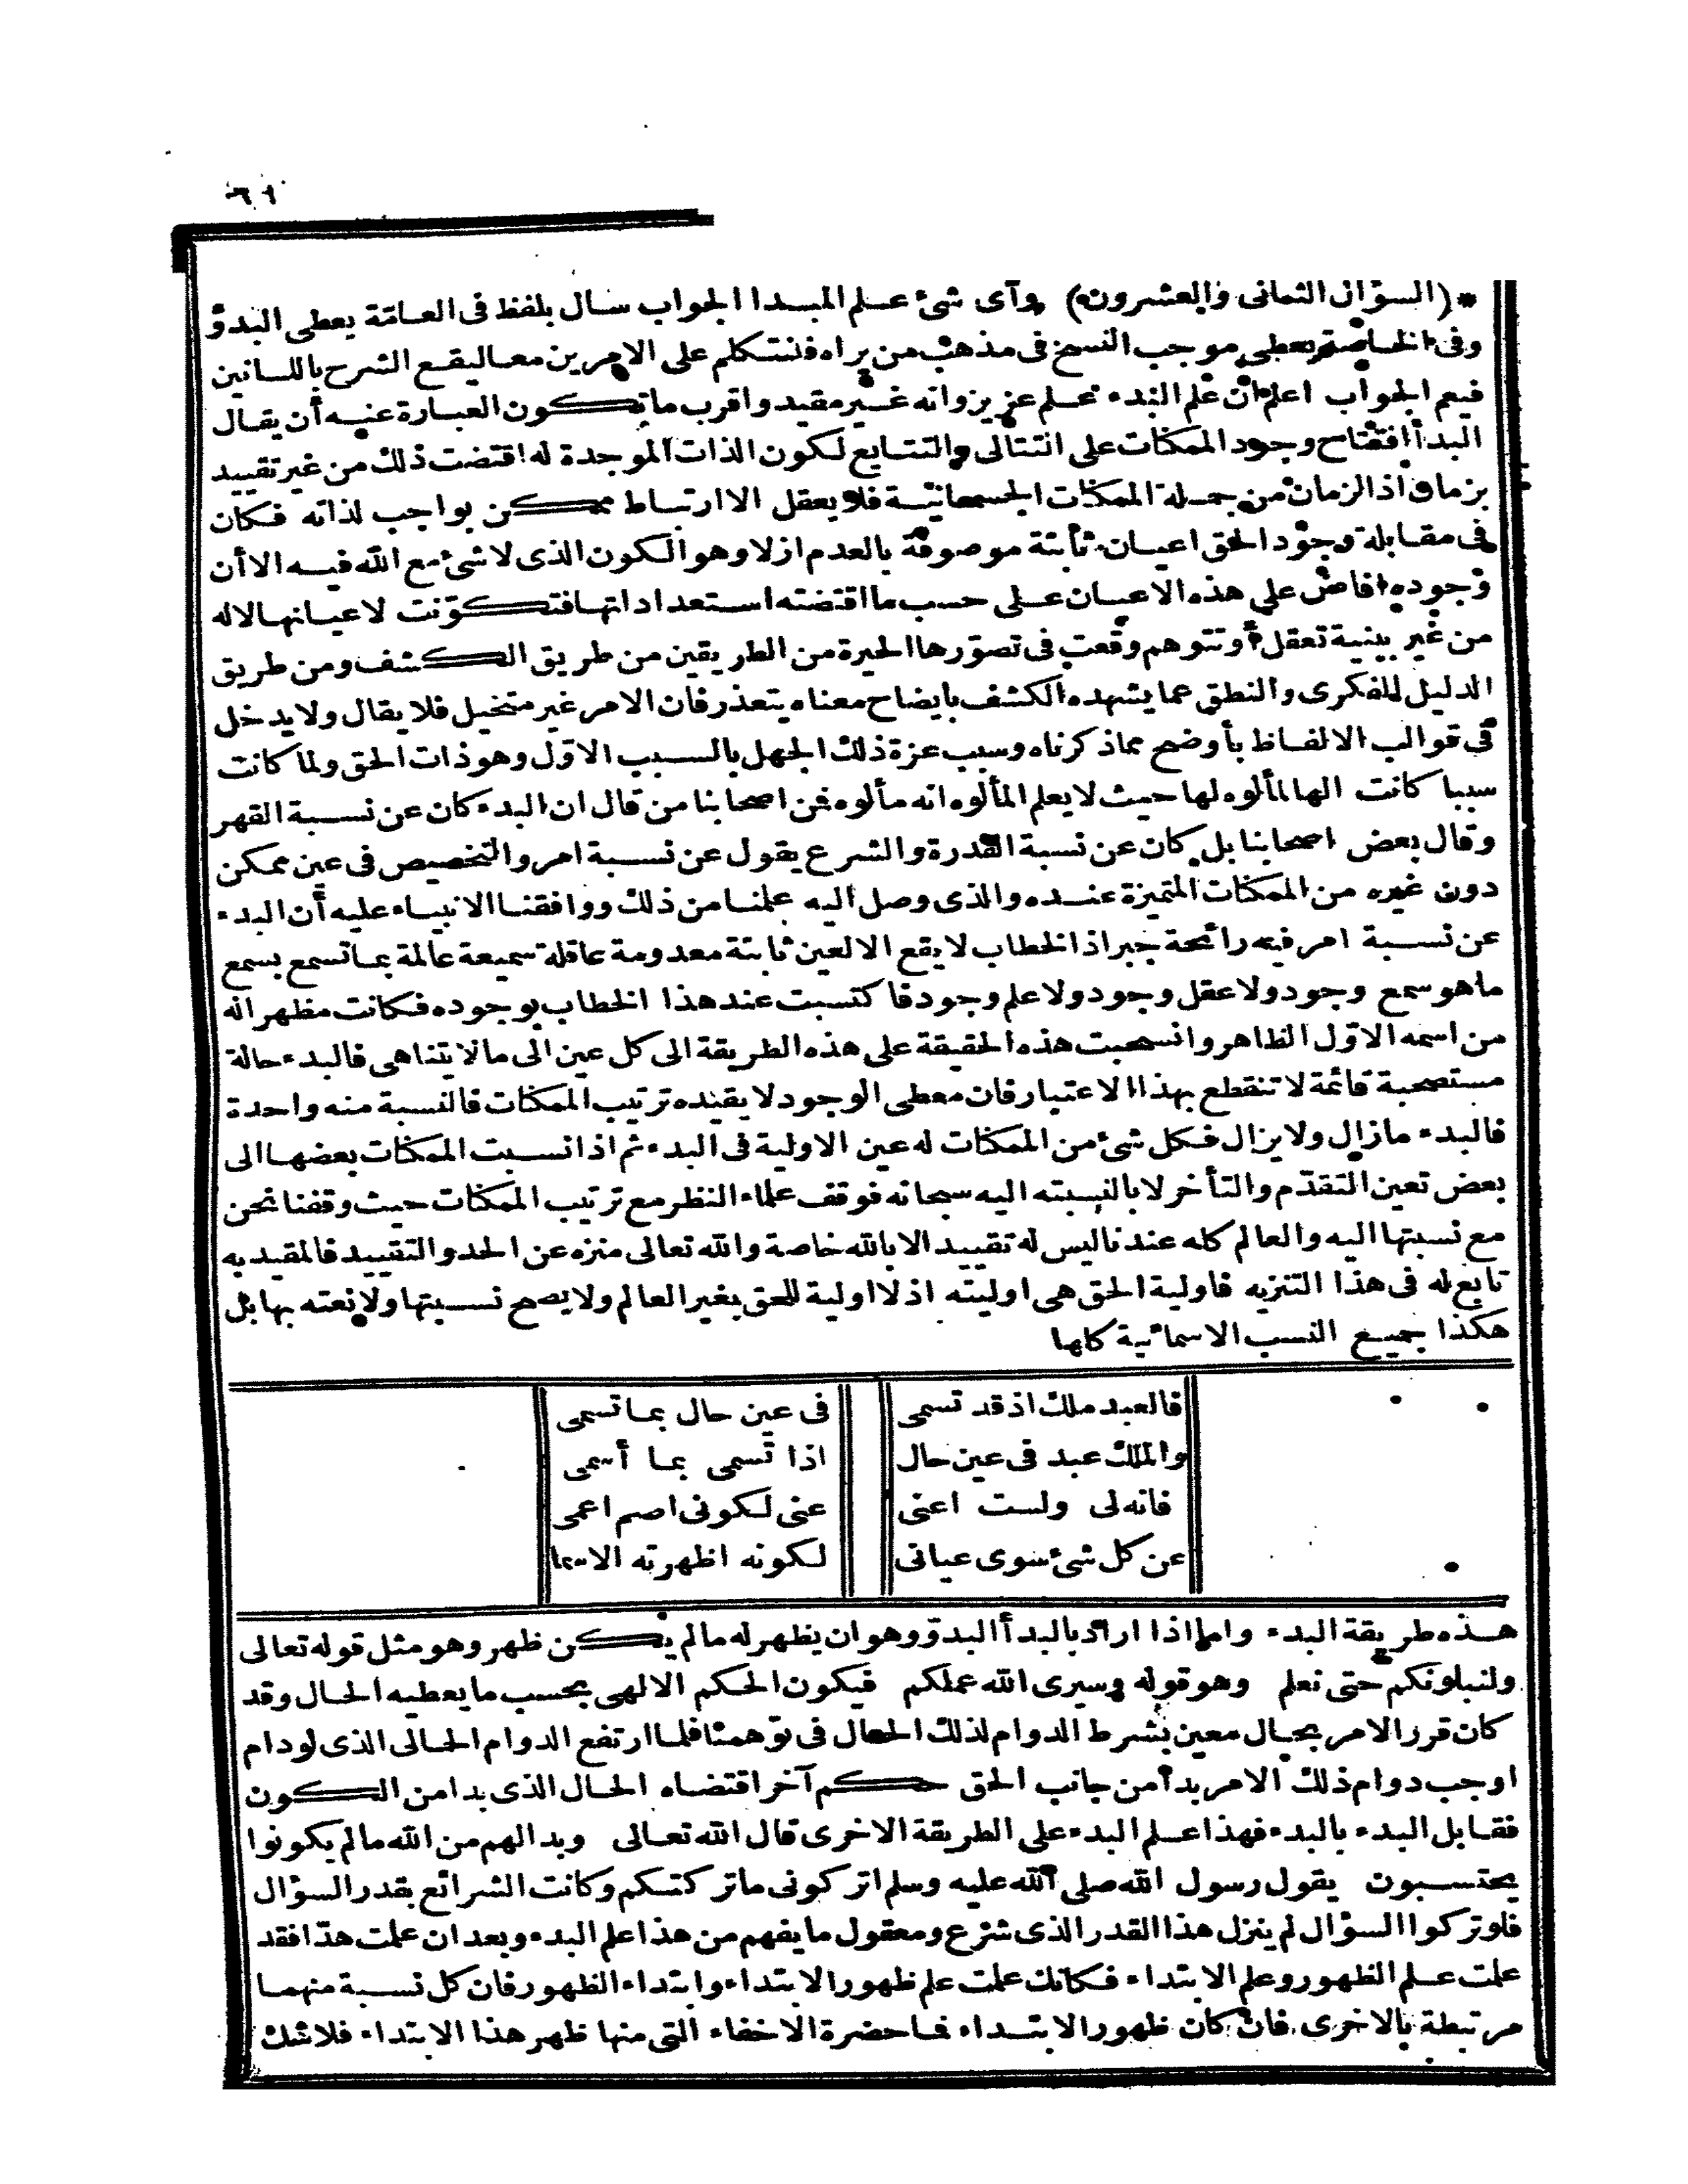 ٦١
* (السؤال الثمانى والعشرون) وأى شئ علم المبدا الجواب سال بلفظ فى العامّة يعطى البدوّ
وفى الخاصة يعطى موجب النسخ فى مذهب من يراه فلنتكلم على الامرين معا ليقع الشرح باللسانين
فيعم الجواب اعلم ان علم البدء علم عزيز وانه غير مقيد واقرب ما تكون العبارة عنه أن يقال
البدأ افتتاح وجود الممكنات على التتالى والتتابع لكون الذات الموجدة له اقتضت ذلك من غير تقييد
بزمان اذ الزمان من جملة الممكنات الجسمانية فلا يعقل الا ارتباط ممكن بواجب لذاته فكان
فى مقابلة وجود الحق اعيان ثابتة موصوفة بالعدم ازلا وهو الكون الذى لا شئ مع الله فيه الا أن
وجوده افاض على هذه الاعيان على حسب ما اقتضته استعداداتها فتكوّنت لاعيانها لا له
من غير بينية تعقل أو تتوهم وقعت فى تصوّرها الحيرة من الطريقين من طريق الكشف ومن طريق
الدليل الفكرى والنطق عما يشهده الكشف بايضاح معناه يتعذر فان الامر غير متخيل فلا يقال ولا يدخل
فى قوالب الالفاظ بأوضح مما ذكرناه وسبب عزة ذلك الجهل بالسبب الاوّل وهو ذات الحق ولما كانت
سببا كانت الها لمألوه لها حيث لا يعلم المألوه انه مألوه فمن اصحابنا من قال ان البدء كان عن نسبة القهر
وقال بعض اصحابنا بل كان عن نسبة القدرة والشرع يقول عن نسبة امر والتخصيص فى عين ممكن
دون غيره من الممكنات المتميزة عنده والذى وصل اليه علمنا من ذلك ووافقنا الانبياء عليه أن البدء
عن نسبة امر فيه رائحة جبر اذ الخطاب لا يقع الا لعين ثابتة معدومة عاقلة سميعة عالمة بما تسمع بسمع
ما هو سمع وجود ولا عقل وجود ولا علم وجود فاكتسبت عند هذا الخطاب بوجوده فكانت مظهرا له
من اسمه الاوّل الظاهر وانسحبت هذه الحقيقة على هذه الطريقة الى كل عين الى ما لا يتناهى فالبدء حالة
مستصحبة قائمة لا تنقطع بهذا الاعتبار فان معطى الوجود لا يقيده ترتيب الممكنات فالنسبة منه واحدة
فالبدء ما زال ولا يزال فكل شئ من الممكنات له عين الاولية فى البدء ثم اذا نسبت الممكنات بعضها الى
بعض تعين التقدّم والتأخر لا بالنسبته اليه سبحانه فوقف علماء النظر مع ترتيب الممكنات حيث وقفنا نحن
مع نسبتها اليه والعالم كله عندنا ليس له تقييد الا بالله خاصة والله تعالى منزه عن الحد والتقييد فالمقيد به
تابع له فى هذا التنزيه فاولية الحق هى اوليته اذ لا اولية للحق بغير العالم ولا يصح نسبتها ولا نعته بها بل
هكذا جميع النسب الاسمائية كلها
فالعبد ملك اذ قد تسمى فى عين حال بما تسمى
والملك عبد فى عين حال اذا تسمى بما أسمى
فانه لى ولست اعنى عنى لكونى اصم اعمى
عن كل شئ سوى عيانى لكونه اظهرته الاسما
هذه طريقة البدء واما اذا اراد بالبدأ البدوّ وهو ان يظهر له ما لم يكن ظهر وهو مثل قوله تعالى
ولنبلونكم حتى نعلم وهو قوله وسيرى الله عملكم فيكون الحكم الالهى بحسب ما يعطيه الحال وقد
كان قرر الامر بحال معين بشرط الدوام لذلك الحال فى توّهمنا فلما ارتفع الدوام الحالى الذى لو دام
اوجب دوام ذلك الامر بدأ من جانب الحق حكم آخر اقتضاه الحال الذى بدا من الكون
فقابل البدء بالبدء فهذا علم البدء على الطريقة الاخرى قال الله تعالى وبدا لهم من الله ما لم يكونوا
يحتسبون يقول رسول الله صلى الله عليه وسلم اتركونى ما تركتكم وكانت الشرائع بقدر السؤال
فلو تركوا السؤال لم ينزل هذا القدر الذى شرع ومعقول ما يفهم من هذا علم البدء وبعد ان علمت هذا فقد
علمت علم الظهور وعلم الابتداء فكانك علمت علم ظهور الابتداء وابتداء الظهور فان كل نسبة منهما
مرتبطة بالاخرى فان كان ظهور الابتداء فما حضرة الاخفاء التى منها ظهر هذا الابتداء فلا شك